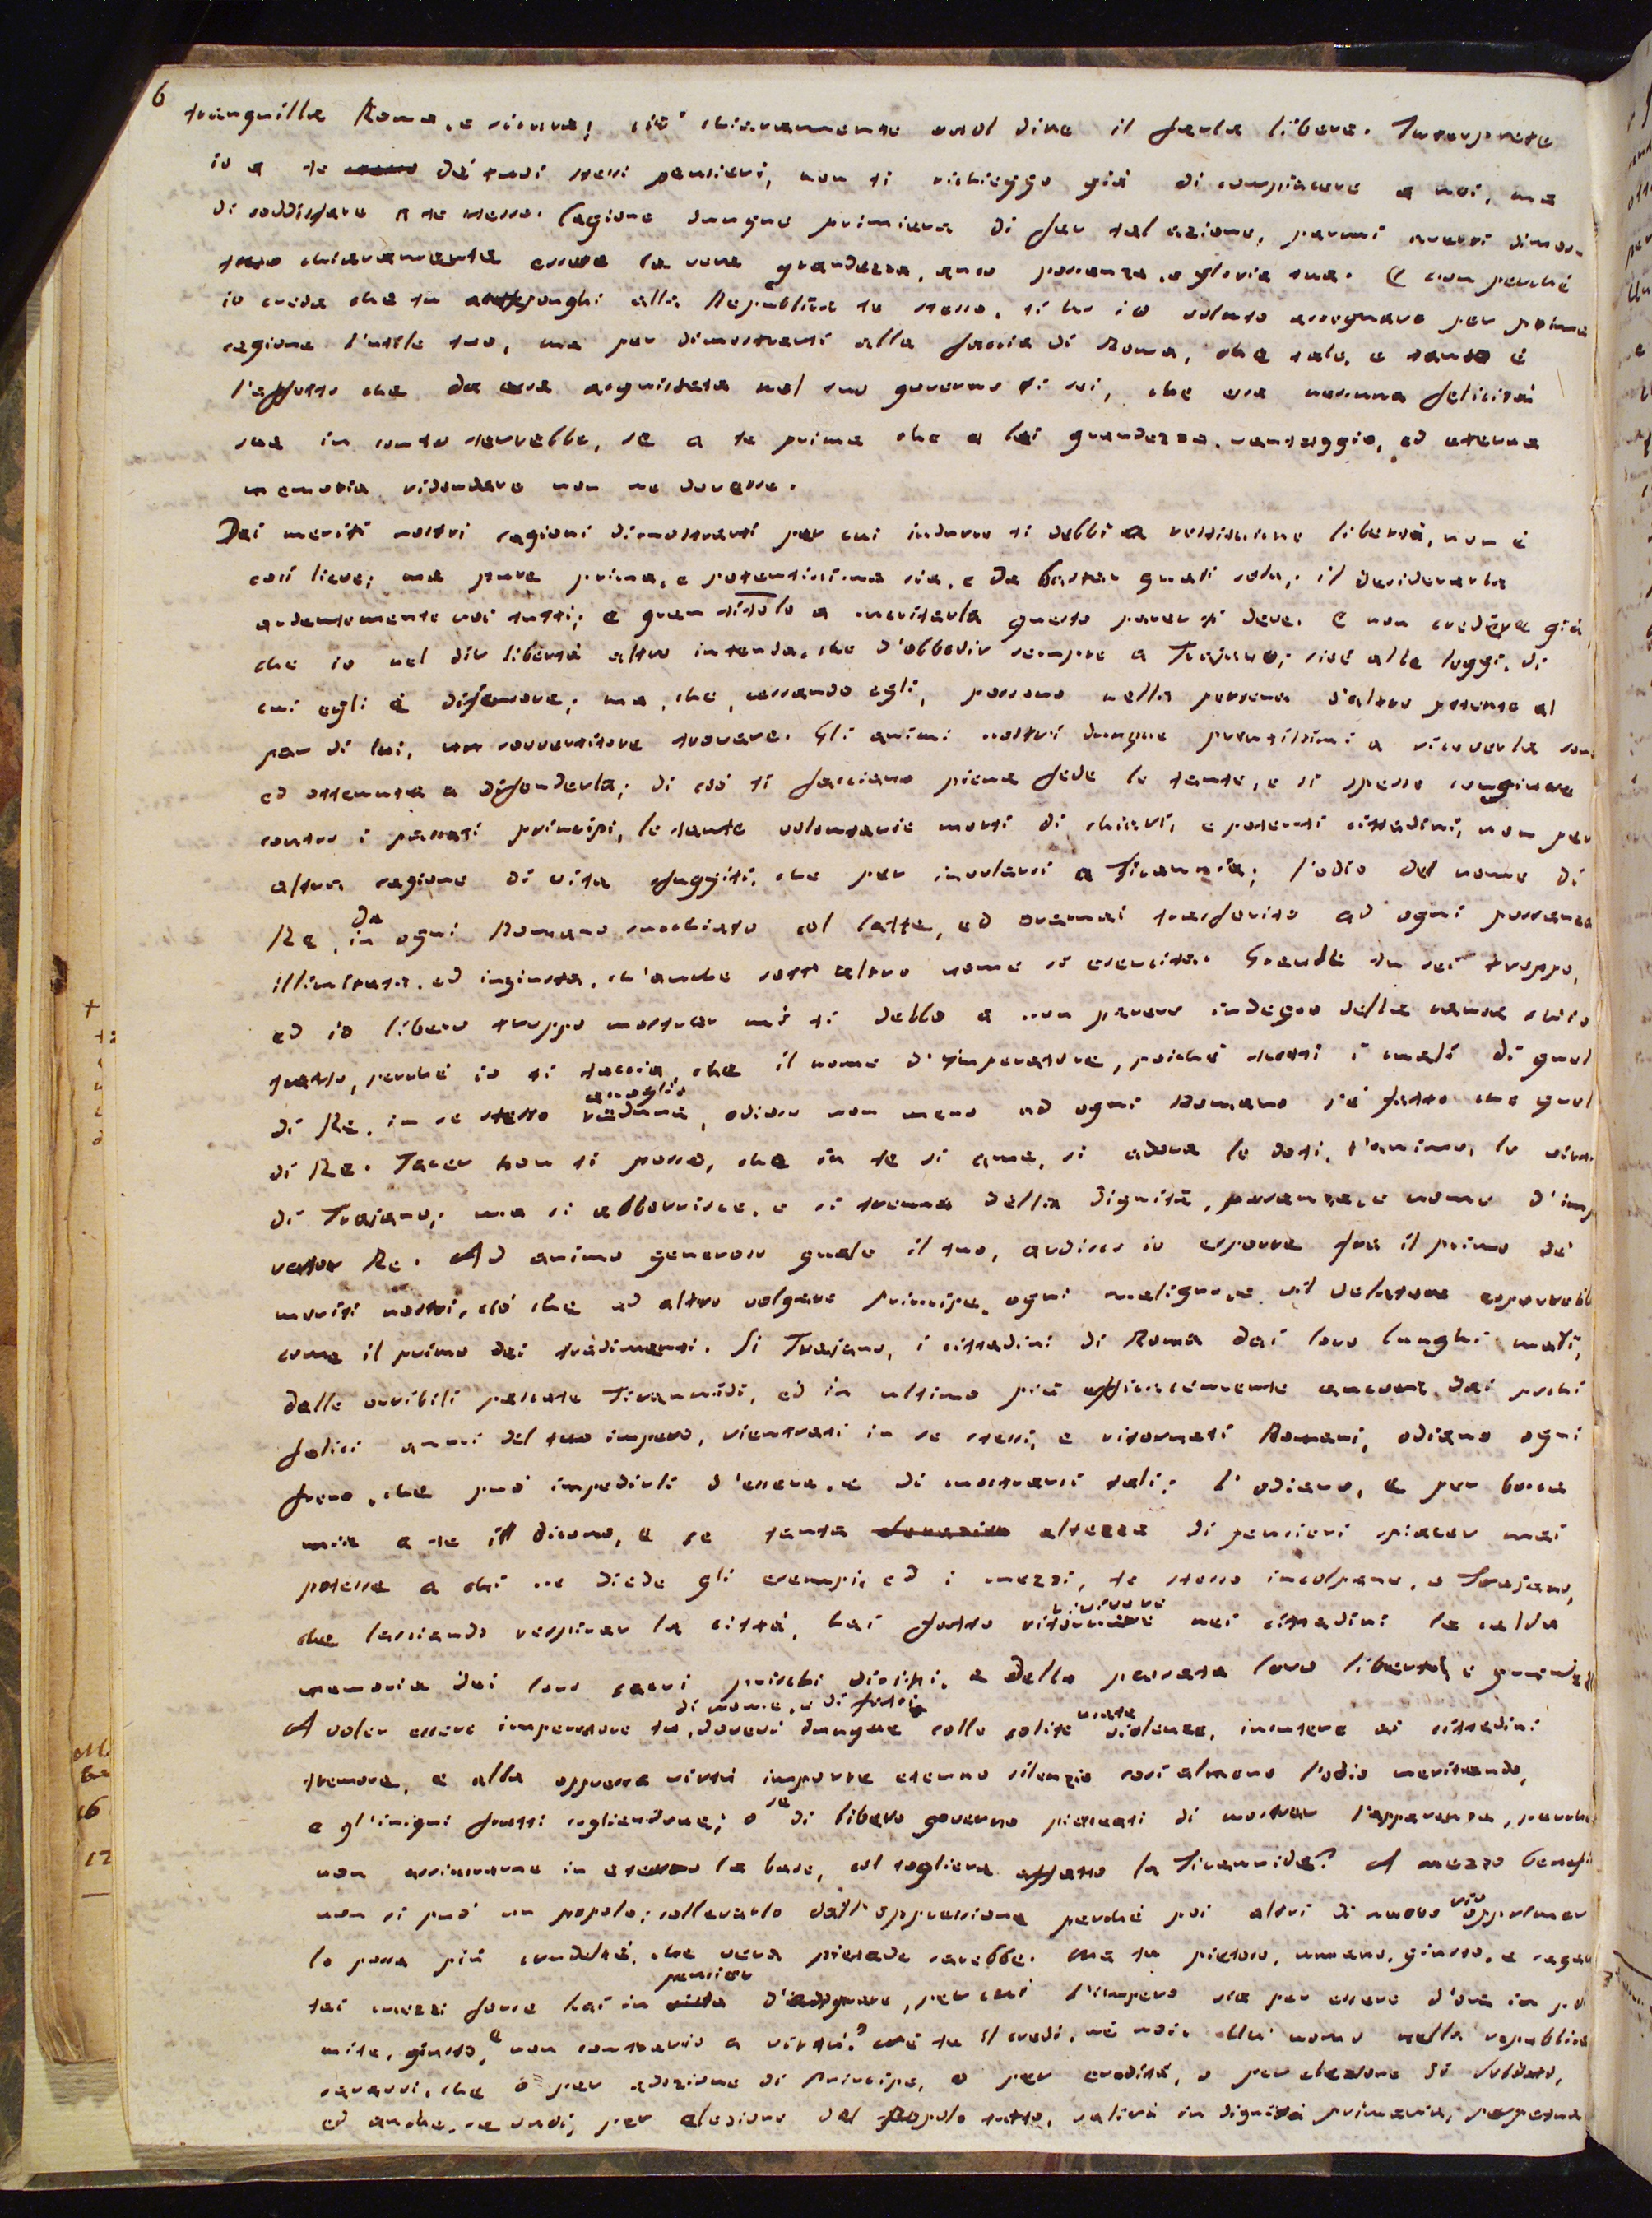 6
tranquilla Roma, e sicura; ciò chiaramente vuol dire il farla libera. Interprete
io a te de' tuoi stessi pensieri, non ti richieggo già di compiacere a noi, ma
di soddisfare a te stesso. Cagione dunque primiera di far tal azione, parmi averti dimos-
trato chiaramente essere la vera grandezza, anco possanza, e gloria tua. E non perché
io creda che tu anteponghi alla Republica te stesso, ti ho io voluto assegnare per prima
cagione l'utile tuo, ma per dimostrarti alla faccia di Roma, che tale, e tanto è
l'affetto che da essa acquistato nel tuo governo ti sei, che essa nessuna felicità
sua in conto terrebbe, se a te prima che a lei grandezza, vantaggio, ed eterna
memoria ridondare non ne dovesse.
Dei meriti nostri cagioni dimostrarti per cui indurre ti debbi a restituirne libertà, non è
così lieve; ma pure prima, e potentissima sia, e da bastar quasi sola, il desiderarla
ardentemente noi tutti; e gran titolo a meritarla questo parer ti deve. E non credere già
che io nel dir libertà altro intenda, che d'obbedir sempre a Trajano; cioè alle leggi, di
cui egli è difensore; ma, che, cessando egli, possono nella persona d'altro potente al
par di lui, un sovvertitore trovare. Gli animi nostri dunque prontissimi a riceverla son
ed ottenuta a difenderla; di ciò ti facciano piena fede le tante, e sì spesse congiure
contro i passati principi, le tante volontarie morti di chiari, e potenti cittadini, non per
altra cagione di vita fuggiti, che per involarsi a Tirannia; l'odio del nome di
Re, da in ogni Romano succhiato col latte, ed oramai trasferito ad ogni possanza
illimitata, ed ingiusta, ch'anche sott' altro nome si eserciti. Grande tu sei troppo,
ed io libero troppo mostrar mi ti debbo a non parere indegno della causa ch'io
tratto, perché io ti taccia, che il nome d'Imperatore, poiché tutti i mali di quel
di Re, in se stesso raduna accoglie, odioso non meno ad ogni Romano s'è fatto che quel
di Re. Tacer non ti posso, che in te si ama, si adora le doti, l'animo, le virtù
di Trajano; ma si abborrisce, e si trema della dignità, possanza, e nome d'imp
rator Re. Ad animo generoso quale il tuo, ardisco io esporre fra il primo de'
meriti nostri, ciò che ad altro volgare Principe, ogni maligno, e vil delatore esporrebb
come il primo dei tradimenti. Sì Trajano, i cittadini di Roma dai loro lunghi mali,
dalle orribili passate Tirannidi, ed in ultimo più efficacemente ancora, dai pochi
felici anni del tuo impero, rientrati in se stessi, e ritornati Romani, odiano ogni
freno, che può impedirli d'essere, e di mostrarsi tali; l'odiano, e per bocca
mia a te il dicono, e se tanta altezza di pensieri spiacer mai
potesse a chi ne diede gli esempi, ed i mezzi, te stesso incolpane, o Trajano,
che lasciando respirar la città, hai fatto ritornare rivivere nei cittadini la calda
memoria dei loro prischi e della passata loro libertà, e grandezza
A voler essere imperatore tu, di nome, e di fatti dovevi dunque colle solite usate violenze, incutere ai cittadini
tremore, e alla oppressa virtù imporre eterno silenzio così almeno l'odio meritando,
e gl'iniqui frutti cogliendone; o se di libero governo piaceati di mostrar l'apparenza, perché
non assicurarne in eterno la base, col togliere affatto la Tirannide? A mezzo benefi
non si può un popolo; sollevarlo dall'oppressione perché poi altri di nuovo vio opprimer
lo possa più crudeltà, che vera pietade sarebbe. Ma tu pietoso, umano, giusto, e sagac
tai mezzi forse hai in pensier d'adoprare, per cui l'impero sia per essere d'ora in po
mite, giusto, e non contrario a virtù? Né tu il credi, né noi. Mai uomo nella republica
saravvi, che o per adozione di Principe, o per eredità, o per elezione di Soldato,
ed anche, se vuoi, per elezione del Popolo tutto, salirà in dignità primaria, perpetua